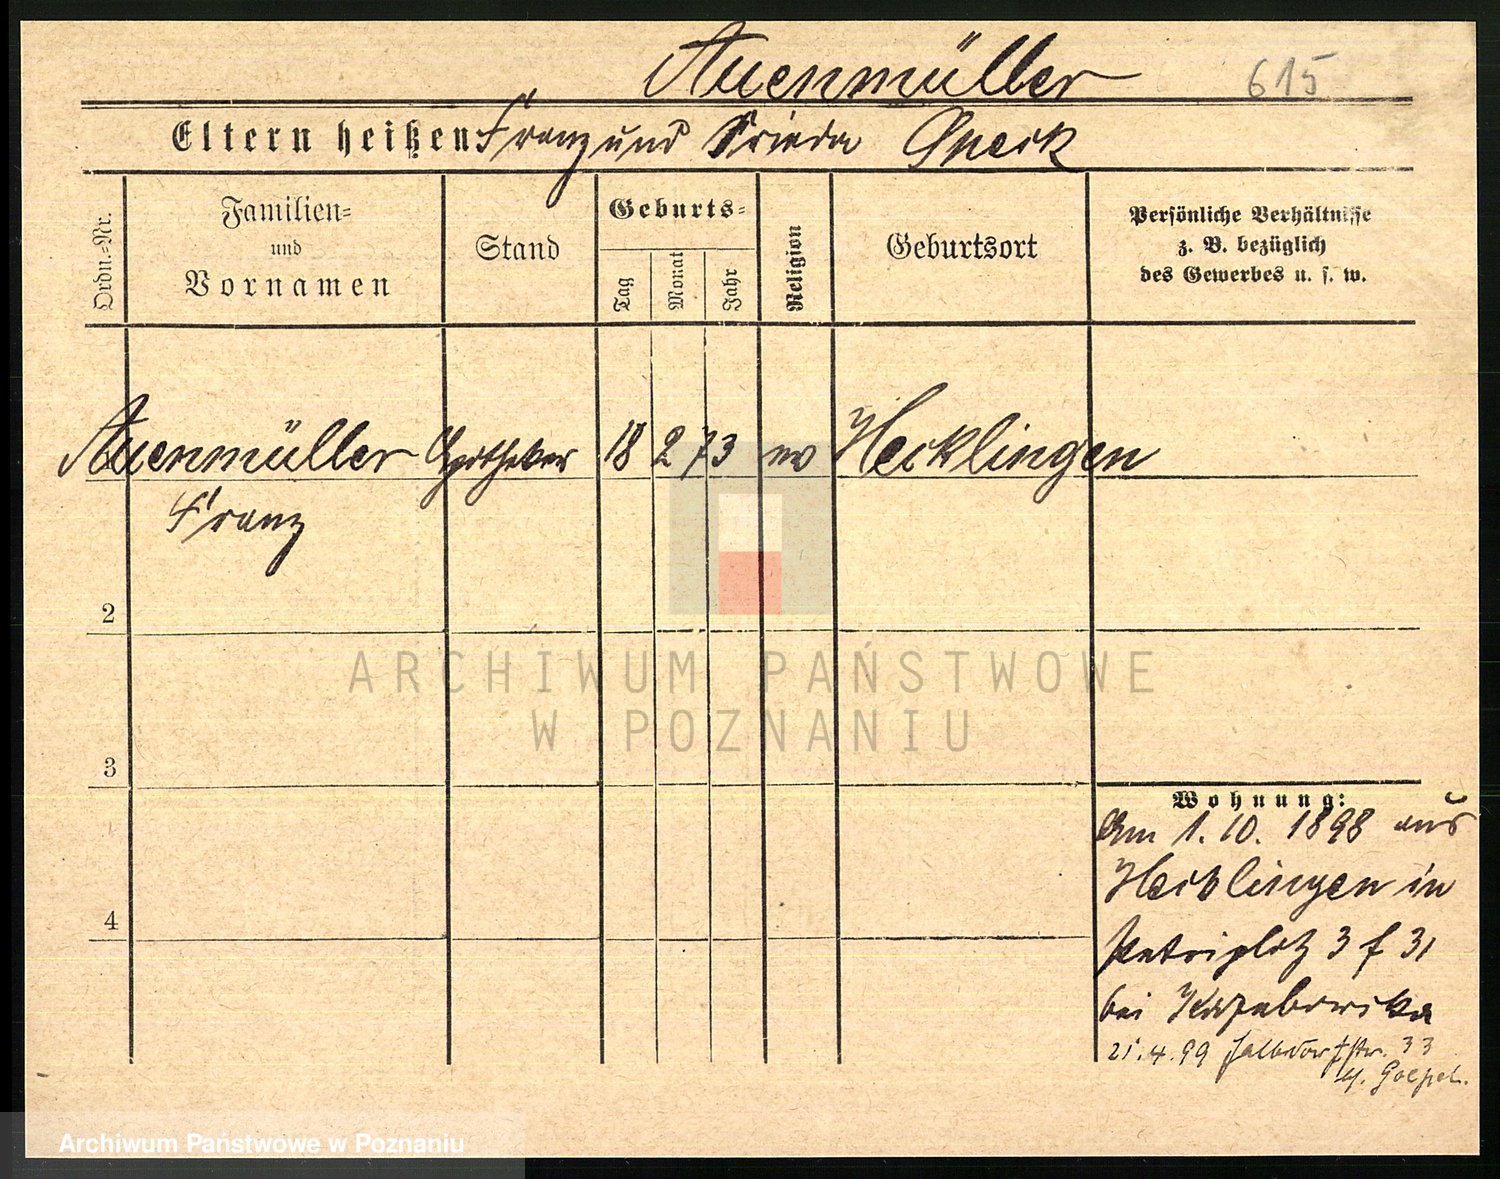 Auenmüller 615
Eltern heißen Franz und Frieda Speck
Ordn.-Nr.
Familien-
und
Vornamen
Stand
Geburts-
Tag
Monat
Jahr
Religion
Geburtsort
Persönliche Verhältnisse
z. B. bezüglich
des Gewerbes u. s. w.
Auenmüller Apotheker 18 2 73 ev Hecklingen
Franz
2
ARCHIWUM PAŃSTWOWE
W POZNANIU
3
Wohnung:
Am 1. 10. 1898 aus
Hecklingen in
Petriplatz 3 f 31
4
bei
21.4.99 33
Archiwum Państwowe w Poznaniu